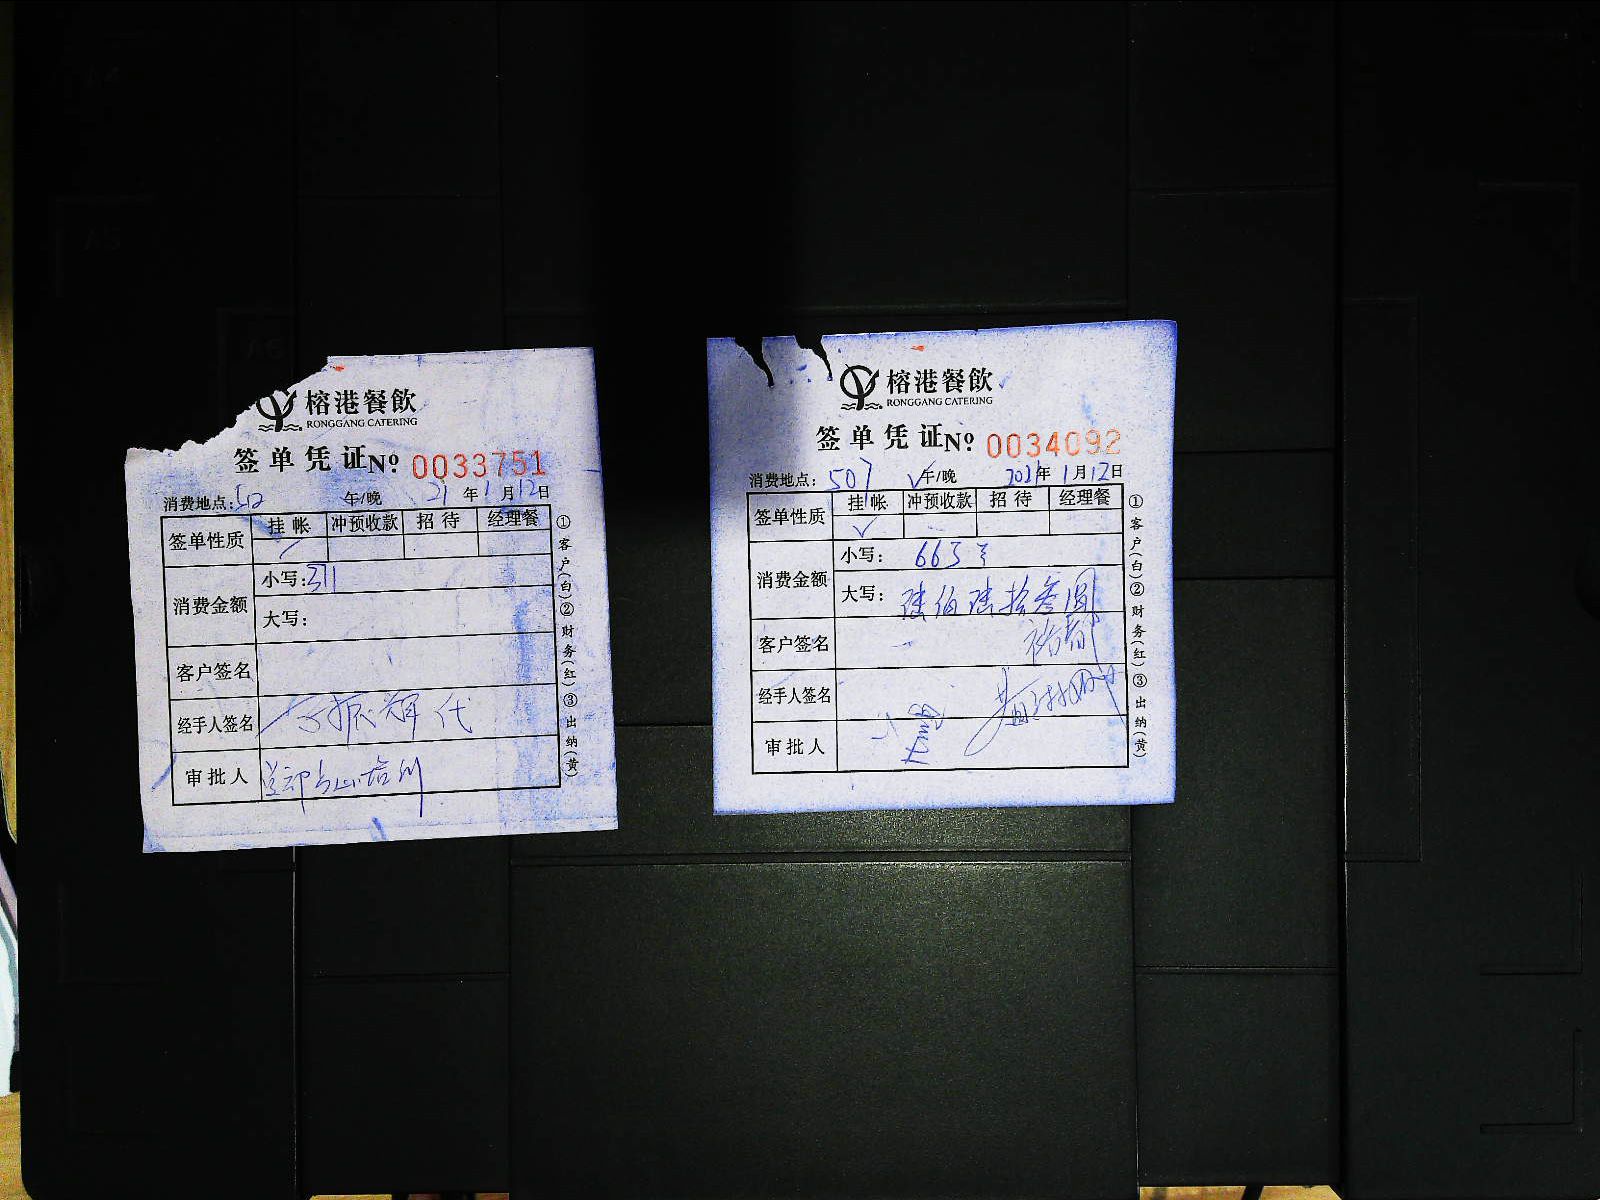 榕港餐飲
RONGGANG CATERING
签单凭证№ 0033751
消费地点:512 午/晚 21年1月12日
签单性质 挂帐 冲预收款 招待 经理餐
消费金额 小写:311
大写:
客户签名
经手人签名 振辉代
审批人 培训
①客户(白)②财务(红)③出纳(黄)
榕港餐飲
RONGGANG CATERING
签单凭证№ 0034092
消费地点:507 √午/晚 2021年1月12日
签单性质 挂帐 冲预收款 招待 经理餐
√
消费金额 小写: 663元
大写: 陆佰陆拾叁圆
客户签名
经手人签名
审批人
①客户(白)②财务(红)③出纳(黄)